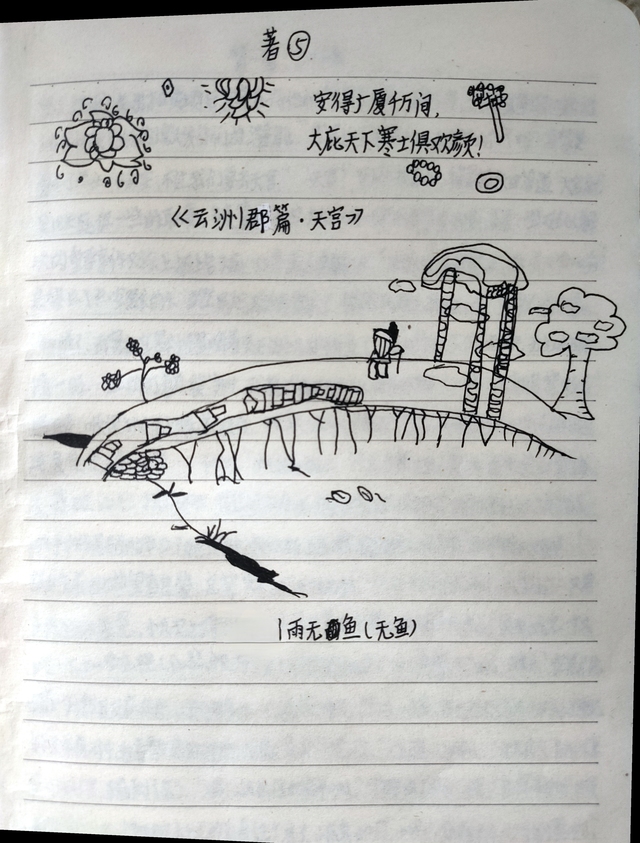 著⑤
安得广厦千万间,
大庇天下寒士俱欢颜!
《云洲郡篇·天宫》
雨无鱼(无鱼)